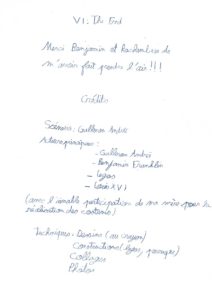 VI. The End
Merci Benjamin et Rachambeau de
m'avoir fait prendre l'air!!!
Crédits
Scénario: Guilleron André
Acteurs principaux:
- Guilleron André
- Benjamin Franklin
- Legos
- Louis XVI
(avec l'aimable participation de ma mère pour la
réalisation des costumes)
Techniques: Dessins (au crayon)
Constructions (legos, )
Collages
Photos